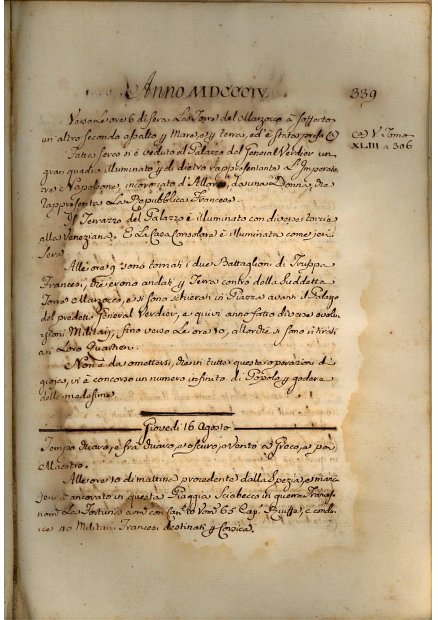 Anno MDCCCIV.
339
Verso Le ore 6 di sera La Torre del Marzoco à sofferto
un'altro secondo assalto p Mare, e p terra, ed è stata presa (a)
(a) V. Tomo
XLIII a 306
Questa sera si è veduto al Palazzo del General Verdier un
gran quadro illuminato p di dietro rappresentante L'Impera-
tore Napoleone, incoronato d'Alloro, da una Donna, che
rappresenta La Repubblica Francese.
Il Terrazzo del Palazzo è illuminato con diverse torcie
alla Veneziana. E La Casa Consolare è illuminata come jeri
sera.
Alle ore 9 sono tornati i due Battaglioni di Truppa
Francese, che erono andati p Terra contro della suddetta
Torre Marzoco, e si sono schierati in Piazza avanti il Palazzo
del predetto General Verdier, e quivi anno fatto diverse evolu-
zioni Militari, fino verso Le ore 10, allorchè si sono ritirati
a i Loro Quartieri.
Non è da omettersi, che in tutte queste operazioni di
gioja, vi è concorso un numero infinito di Popolo p godere
delle medesime
Giovedì 16 Agosto
Tempo chiaro, e fra chiaro, e oscuro, e Vento a Greco, e poi
Maestro.
Alle ore 10 di mattina procedente dalla Spezia,
è ancorato in questa Piaggia Sciabecco in guerra Francese
nom. La Fortuna arm. con Can. 10 Vom. 65 Cap. e condu-
ce 40 Militari Francesi destinati p Corsica.